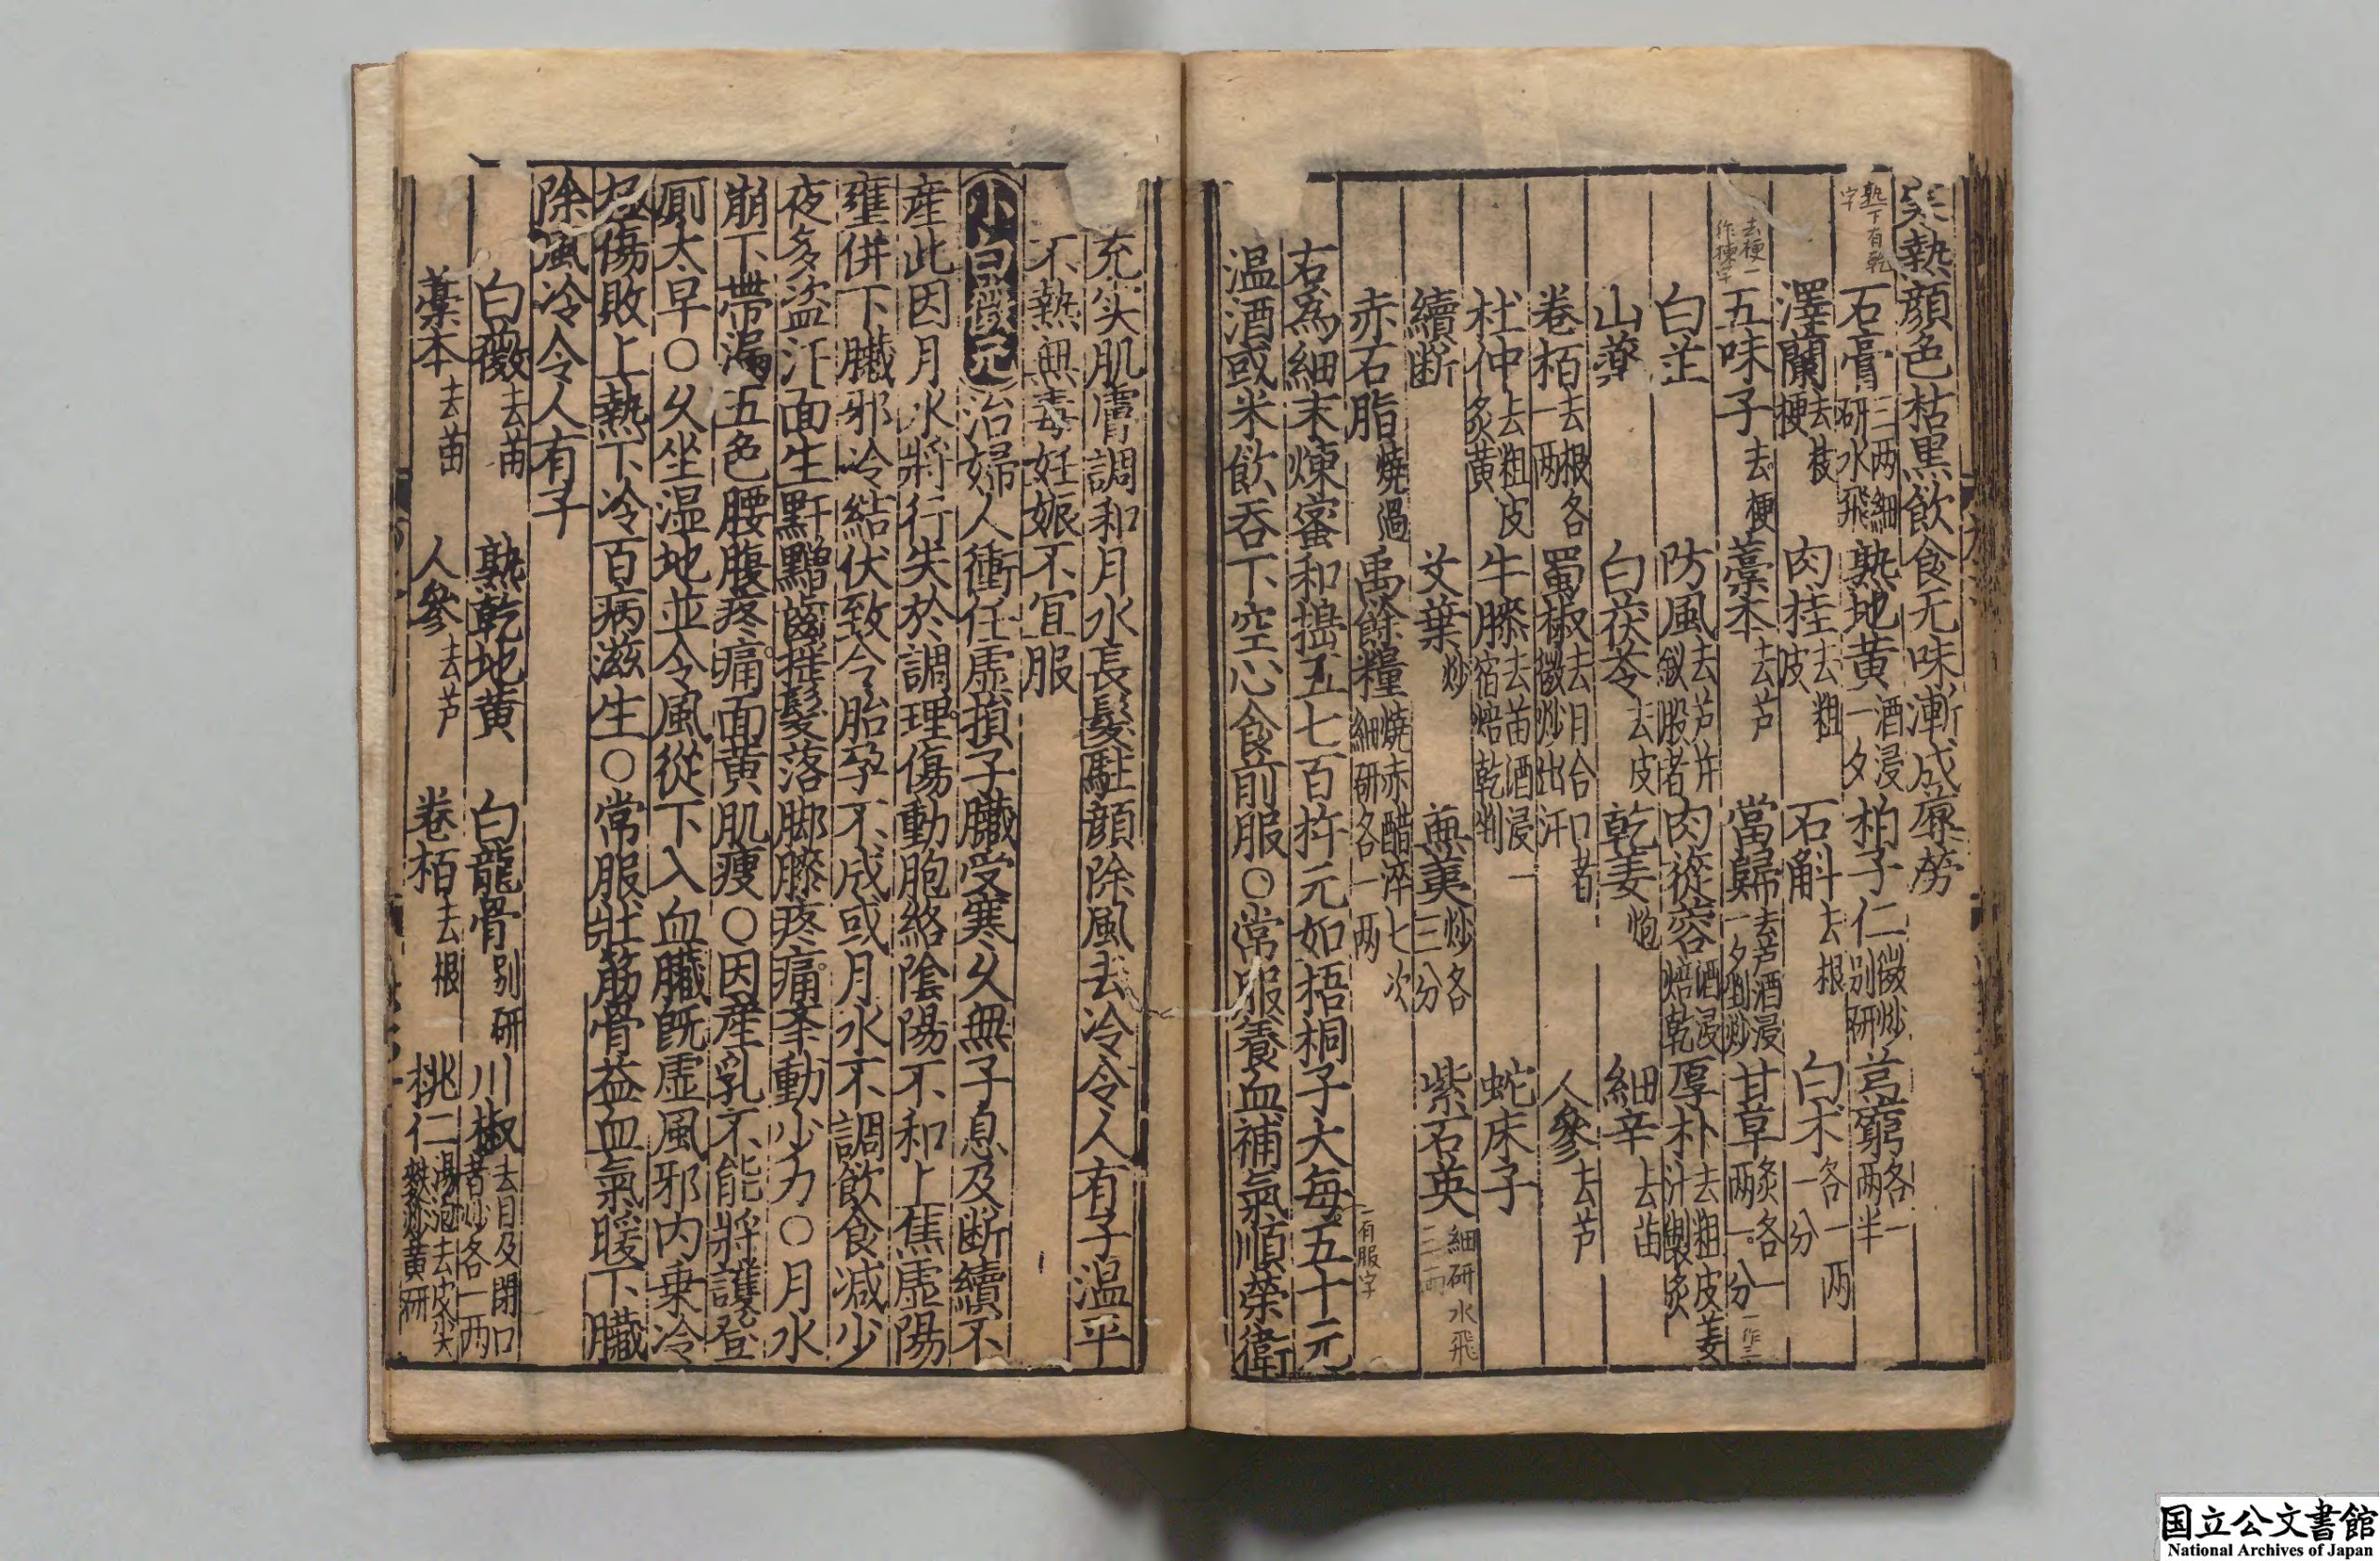 熱顔色枯黒飲食无味漸成蓐勞
熟下有乾字
石膏三两細研水飛 熟地黄酒浸一夕 柏子仁微炒别研 芎藭各一两半
澤蘭去枝梗 肉桂去粗皮 石斛去根 白术各一两一分
去梗一作揀字
五味子去梗 藁本去芦 當歸去芦酒浸一夕剉炒 甘草炙各一两一分
白芷 防風去芦并釵股者 肉蓯蓉酒浸焙乾 厚朴去粗皮姜汁製炙
山藥 白茯苓去皮 乾姜炮 細辛去苗
卷栢去根各一两 蜀椒去目合口者微炒出汗 人參去芦
杜仲去粗皮炙黄 牛膝去苗酒浸一宿焙乾剉 蛇床子
續断 艾葉炒 蕪荑炒各三分 紫石英細研水飛三两
赤石脂燒過 禹餘糧燒赤醋淬七次細研各一两
右為細末煉蜜和搗五七百杵元如梧桐子大每五十元
一有服字
温酒或米飲吞下空心食前服〇常服養血補氣順榮衛
充实肌膚調和月水長髮駐顔除風去冷令人有子温平
不熱無毒妊娠不宜服
小白薇元 治婦人衝任虚損子臓受寒久無子息及断續不
産此因月水將行失於調理傷動胞絡陰陽不和上焦虚陽
壅併下臓邪冷結伏致令胎孕不成或月水不調飲食减少
夜多盗汗面生䵟䵳齒揺髮落脚膝疼痛举動少力〇月水
崩下帶漏五色腰腹疼痛面黄肌瘦〇因産乳不能將護登
厠太早〇久坐湿地並令風從下入血臓既虚風邪内乗冷
傷敗上熱下冷百病滋生〇常服壯筋骨益血氣暖下臓
除風冷令人有子
白薇去苗 熟乾地黄 白龍骨别研 川椒去目及閉口者炒各一两
藁本去苗 人參去芦 卷栢去根 桃仁湯泡去皮尖麩炒黄研
国立公文書館
National Archives of Japan